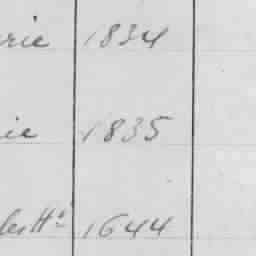 rie 1834
ie 1835
1644